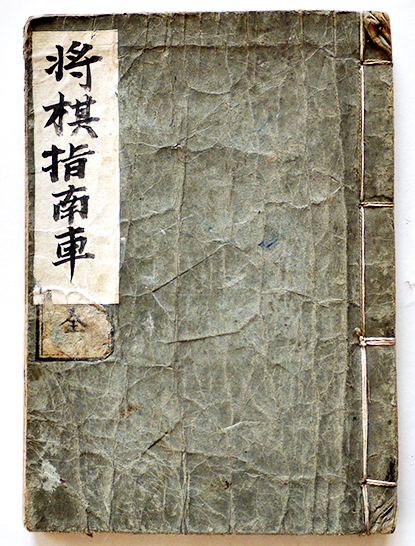 将棋指南車
全